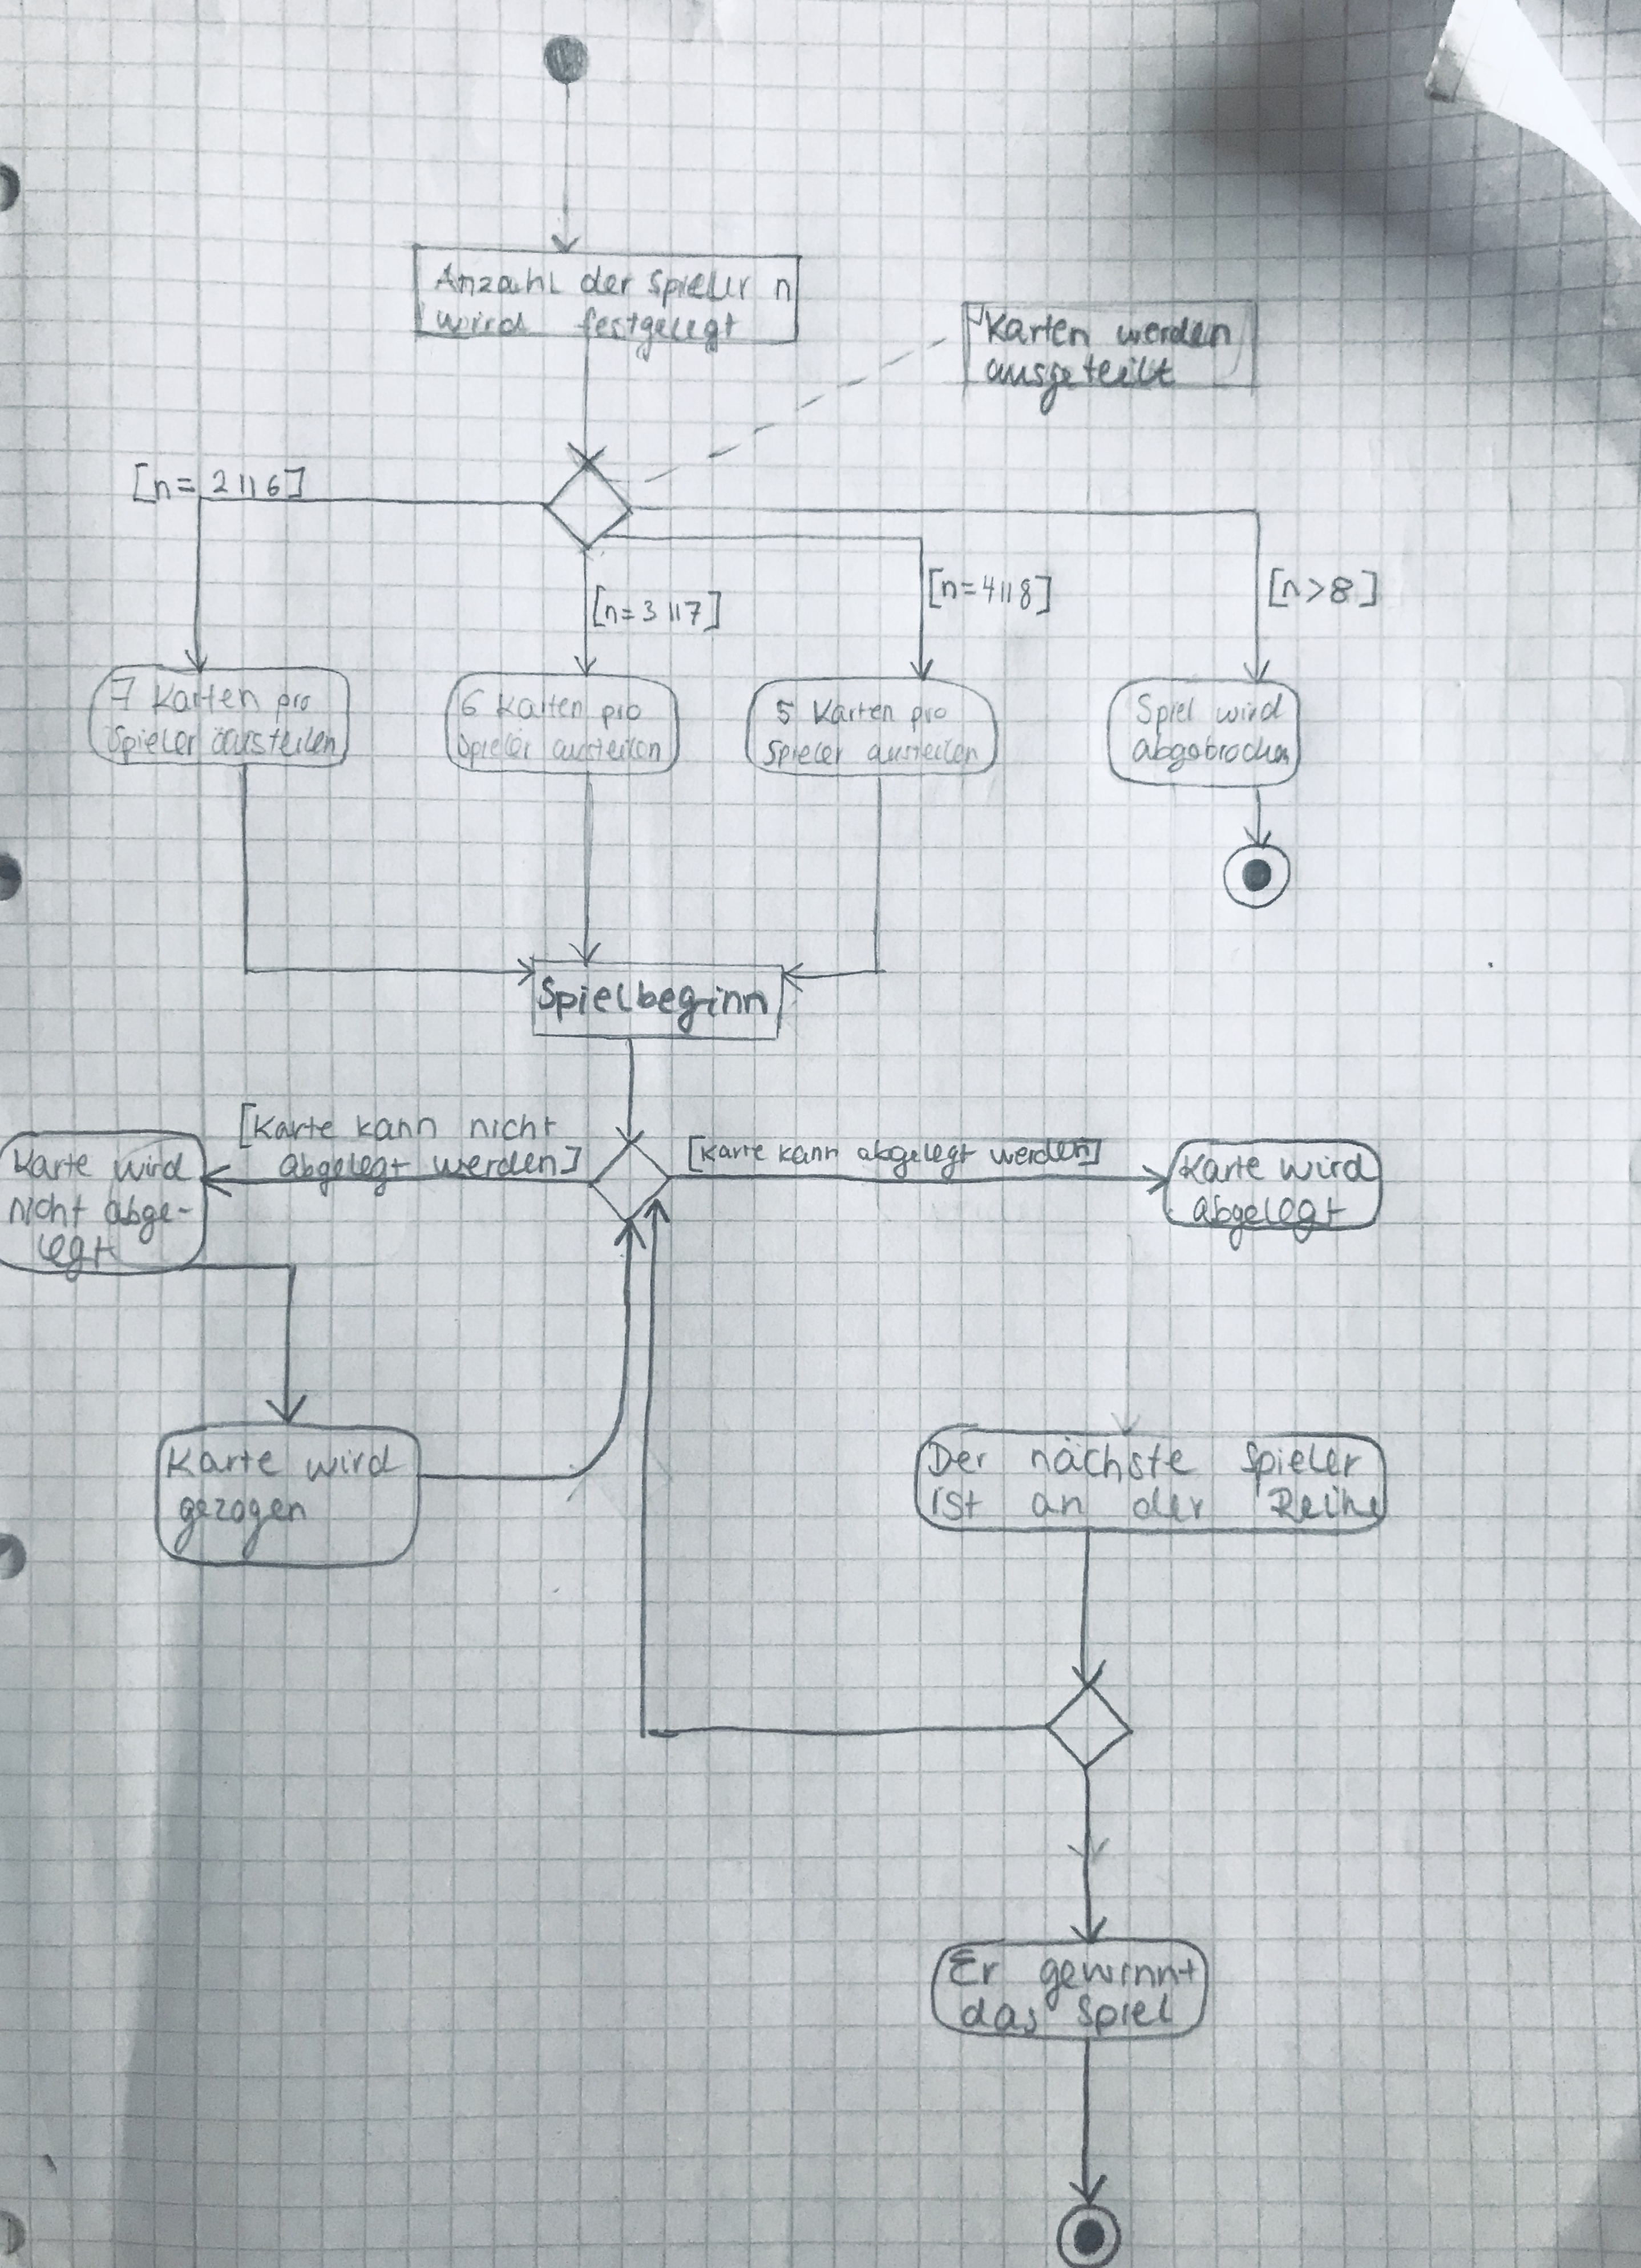 Anzahl der Spieler n
wird festgelegt
Karten werden
ausgeteilt
[n= 2 || 6]
[n= 3 || 7]
[n= 4 || 8]
[n > 8]
7 Karten pro
Spieler austeilen
6 Karten pro
Spieler austeilen
5 Karten pro
Spieler austeilen
Spiel wird
abgebrochen
Spielbeginn
[Karte kann nicht
abgelegt werden]
[Karte kann abgelegt werden]
Karte wird
nicht abge-
legt
Karte wird
abgelegt
Karte wird
gezogen
Der nächste Spieler
ist an der Reihe
Er gewinnt
das Spiel